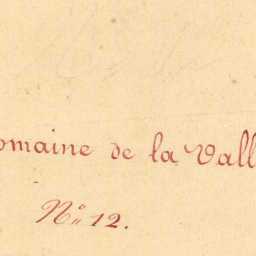 omaine de la Vall
N° 12.